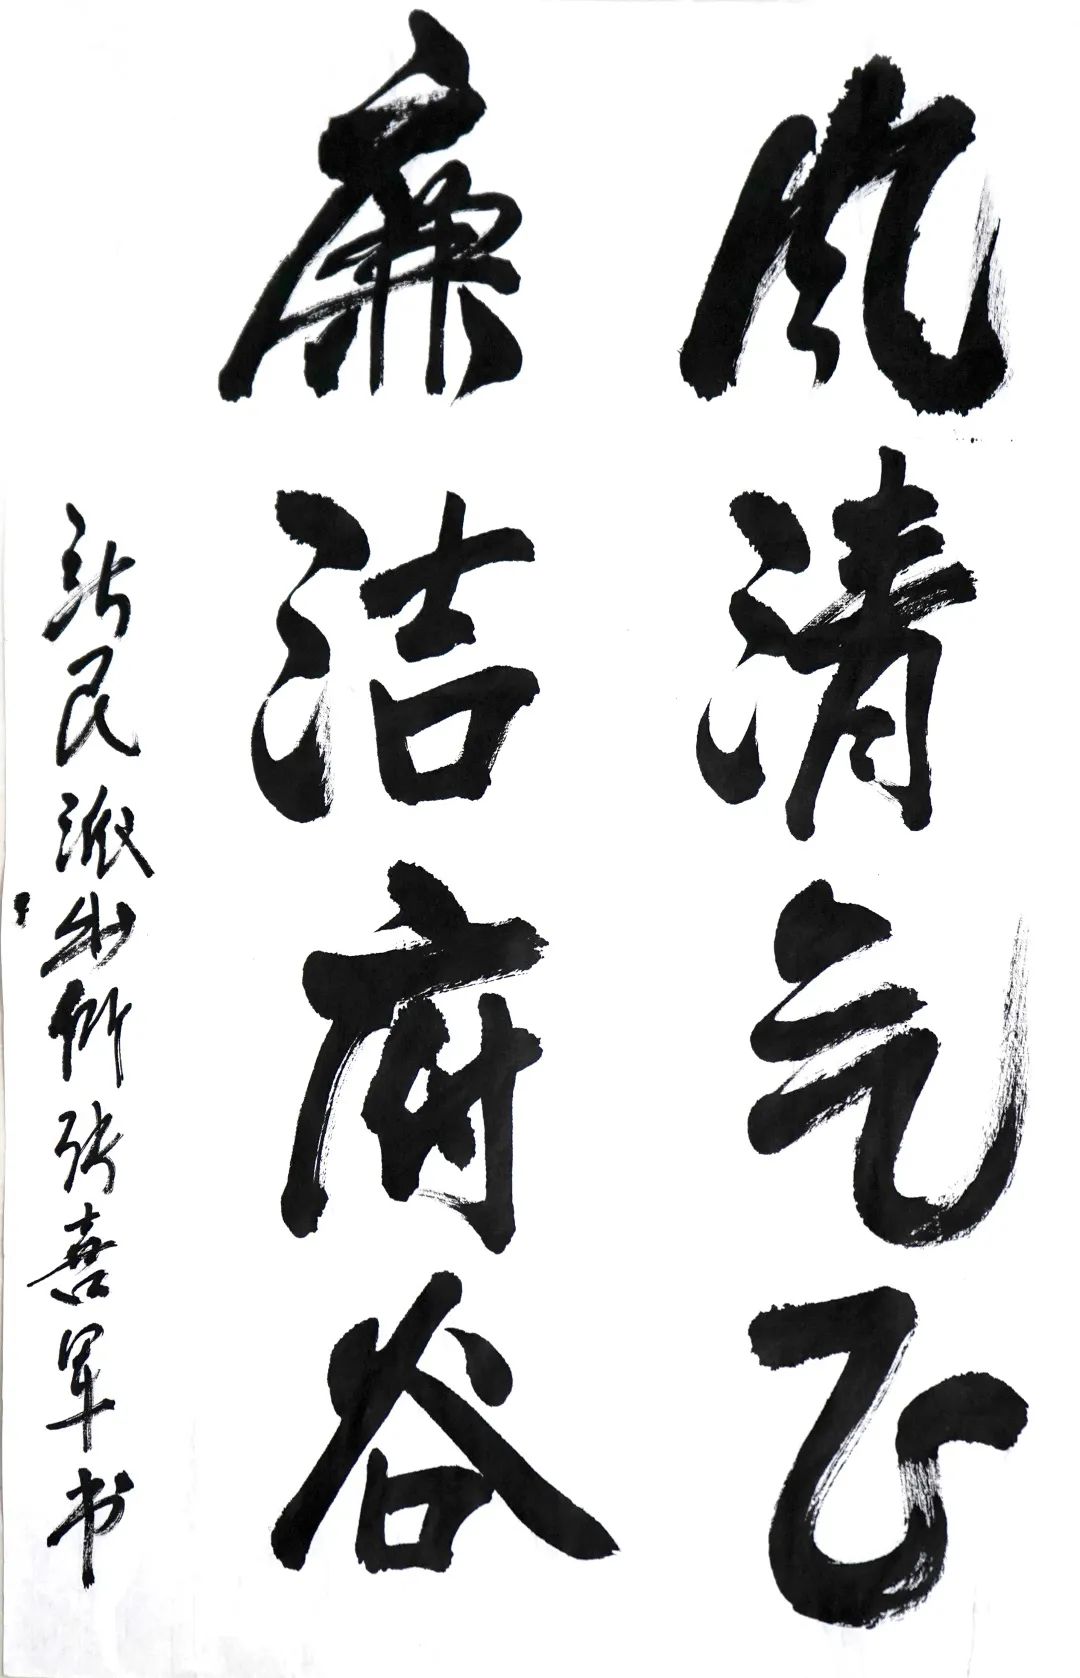 风清气正
廉洁府谷
新民派出所张喜军书